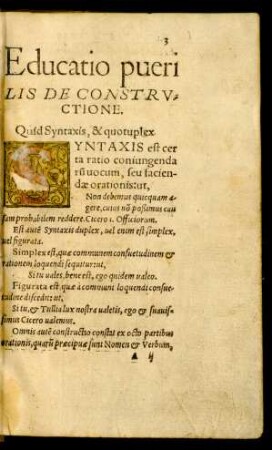 3
Educatio pueri
LIS DE CONSTRV-
CTIONE.
Quid Syntaxis, & quotuplex
SYNTAXIS est cer
ta ratio coniungenda
rū uocum, seu facien-
dæ orationis: ut,
Non debemus quicquam a-
gere, cuius nō possimus cau
sam probabilem reddere. Cicero 1. Officiorum.
Est autē Syntaxis duplex, uel enim est simplex,
uel figurata.
Simplex est, quæ communem consuetudinem &
rationem loquendi sequitur: ut,
Si tu uales, bene est, ego quidem ualeo.
Figurata est, quæ à communi loquendi consue-
tudine discedit: ut,
Si tu, & Tullia lux nostra ualetis, ego & suauis-
simus Cicero ualemus.
Omnis autē constructio constat ex octo partibus
orationis, quarū præcipuæ sunt Nomen & Verbum,
A ij